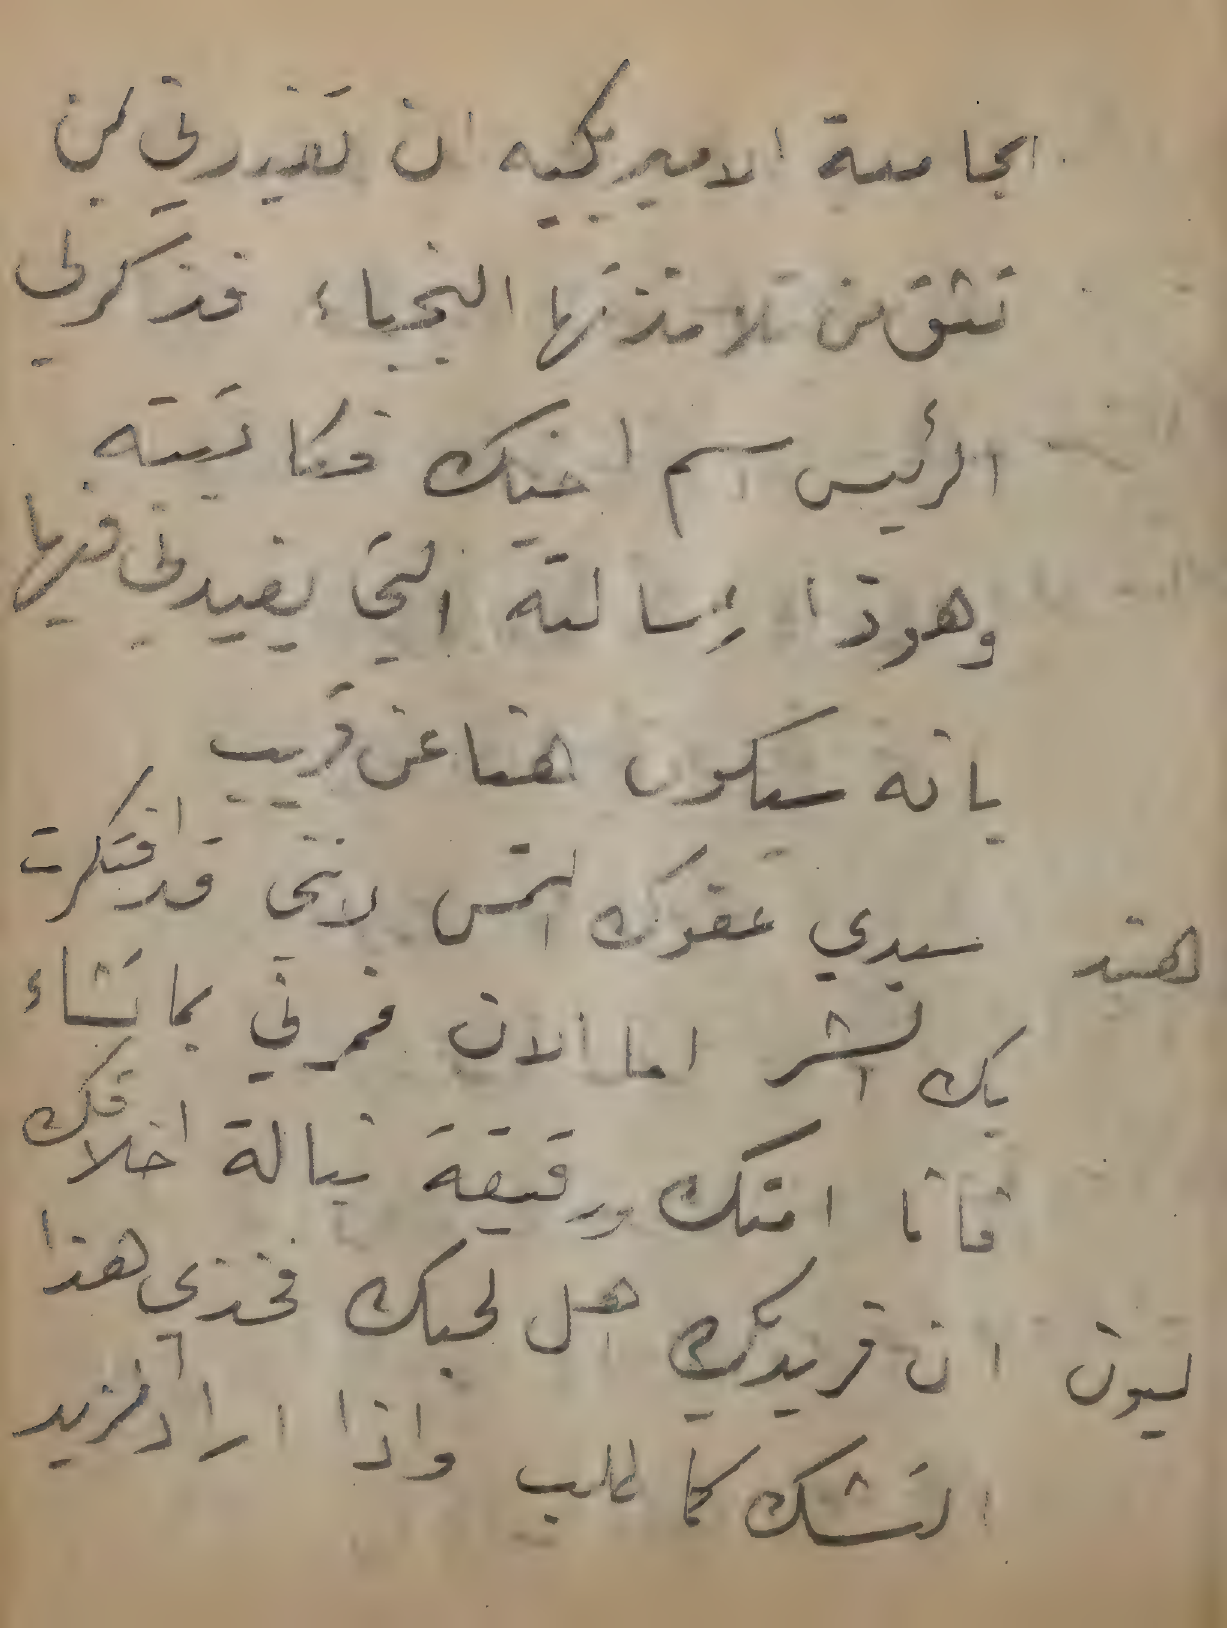 الجامعة الاميريكيه ان تفيدني بمن
تثق من تلامذتها النجباء فذكر لي
الرئيس اسم اخيك فكاتبته
وهوذا رسالته التي يفيدني فيها
بانه سيكون هنا عن قريب
هند سيدي عفوك التمس لانني قد افتكرت
بك الشر اما الان فمرني بما تشاء
فانا امتك ورقيقة نبالة اخلاقك
ليون ان فريديك اهل لحبك فخذي هذا
التشك كما طلب واذا اراد فزيد